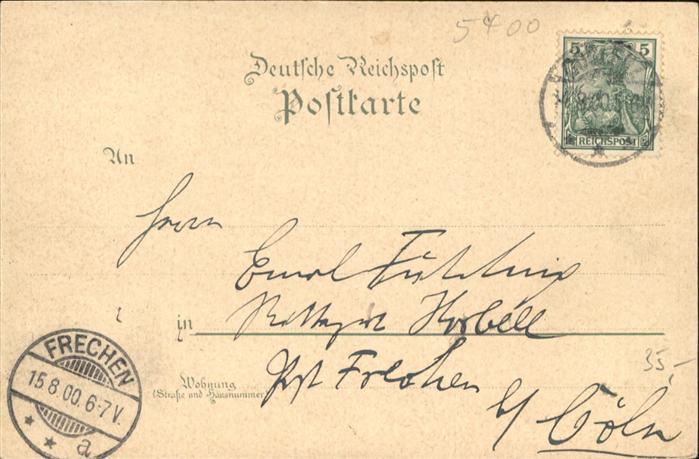 5400
5 5
REICHSPOST
Deutsche Reichspost
Postkarte
An
Herrn
Emil Fühling
in Rittergut Horbell
Wohnung
(Straße und Hausnummer)
Post Frechen
b/ Cöln
35,-
FRECHEN
15.8.00.6-7V.
a